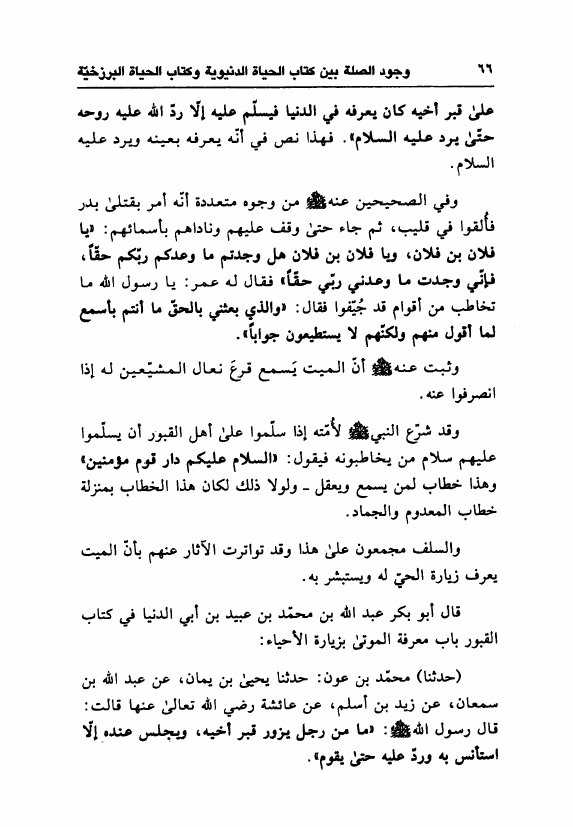 ٦٦ وجود الصلة بين كتاب الحياة الدنيوية وكتاب الحياة البرزخيّة
علىٰ قبر أخيه كان يعرفه في الدنيا فيسلّم عليه إلّا ردّ الله عليه روحه
حتّىٰ يرد عليه السلام». فهذا نص في أنّه يعرفه بعينه ويرد عليه
السلام.
وفي الصحيحين عنهﷺ من وجوه متعددة أنّه أمر بقتلىٰ بدر
فأُلقوا في قليب، ثم جاء حتىٰ وقف عليهم وناداهم بأسمائهم: «يا
فلان بن فلان، ويا فلان بن فلان هل وجدتم ما وعدكم ربّكم حقّاً،
فإنّي وجدت ما وعدني ربّي حقّاً» فقال له عمر: يا رسول الله ما
تخاطب من أقوام قد جُيّفوا فقال: «والذي بعثني بالحقّ ما أنتم بأسمع
لما أقول منهم ولكنّهم لا يستطيعون جواباً».
وثبت عنهﷺ أنّ الميت يَسمع قرعَ نعال المشيّعين له إذا
انصرفوا عنه.
وقد شرّع النبيﷺ لأُمّته إذا سلّموا علىٰ أهل القبور أن يسلّموا
عليهم سلام من يخاطبونه فيقول: «السلام عليكم دار قوم مؤمنين»
وهذا خطاب لمن يسمع ويعقل ـ ولولا ذلك لكان هذا الخطاب بمنزلة
خطاب المعدوم والجماد.
والسلف مجمعون علىٰ هذا وقد تواترت الآثار عنهم بأنّ الميت
يعرف زيارة الحيّ له ويستبشر به.
قال أبو بكر عبد الله بن محمّد بن عبيد بن أبي الدنيا في كتاب
القبور باب معرفة الموتىٰ بزيارة الأحياء:
(حدثنا) محمّد بن عون: حدثنا يحيىٰ بن يمان، عن عبد الله بن
سمعان، عن زيد بن أسلم، عن عائشة رضي الله تعالىٰ عنها قالت:
قال رسول اللهﷺ: «ما من رجل يزور قبر أخيه، ويجلس عنده إلّا
استأنس به وردّ عليه حتىٰ يقوم».